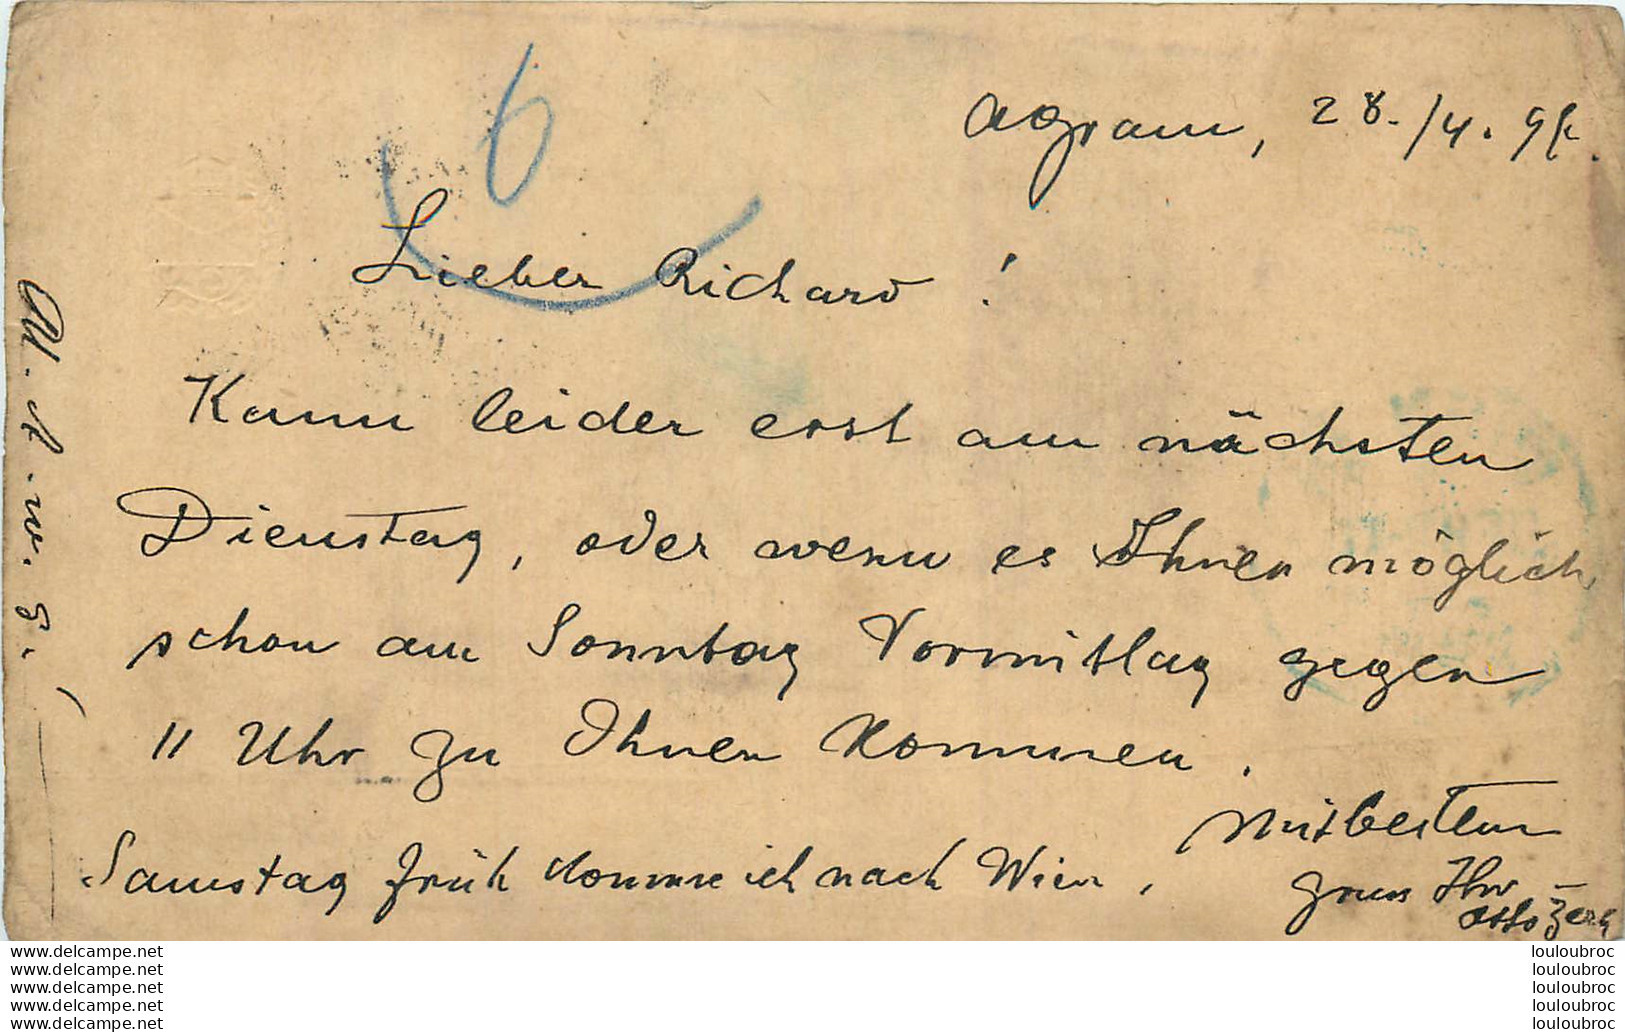 6
Agram, 28./4. 97.
Lieber Richard!
Kann leider erst am nächsten
Dienstag, oder wenn es Ihnen möglich
schon am Sonntag Vormittag gegen
11 Uhr zu Ihnen kommen.
Samstag früh komme ich nach Wien.
Mit besten
Gruss Ihr
Otto
louloubroc
louloubroc
louloubroc
louloubroc
louloubroc
www.delcampe.net
www.delcampe.net
www.delcampe.net
www.delcampe.net
www.delcampe.net